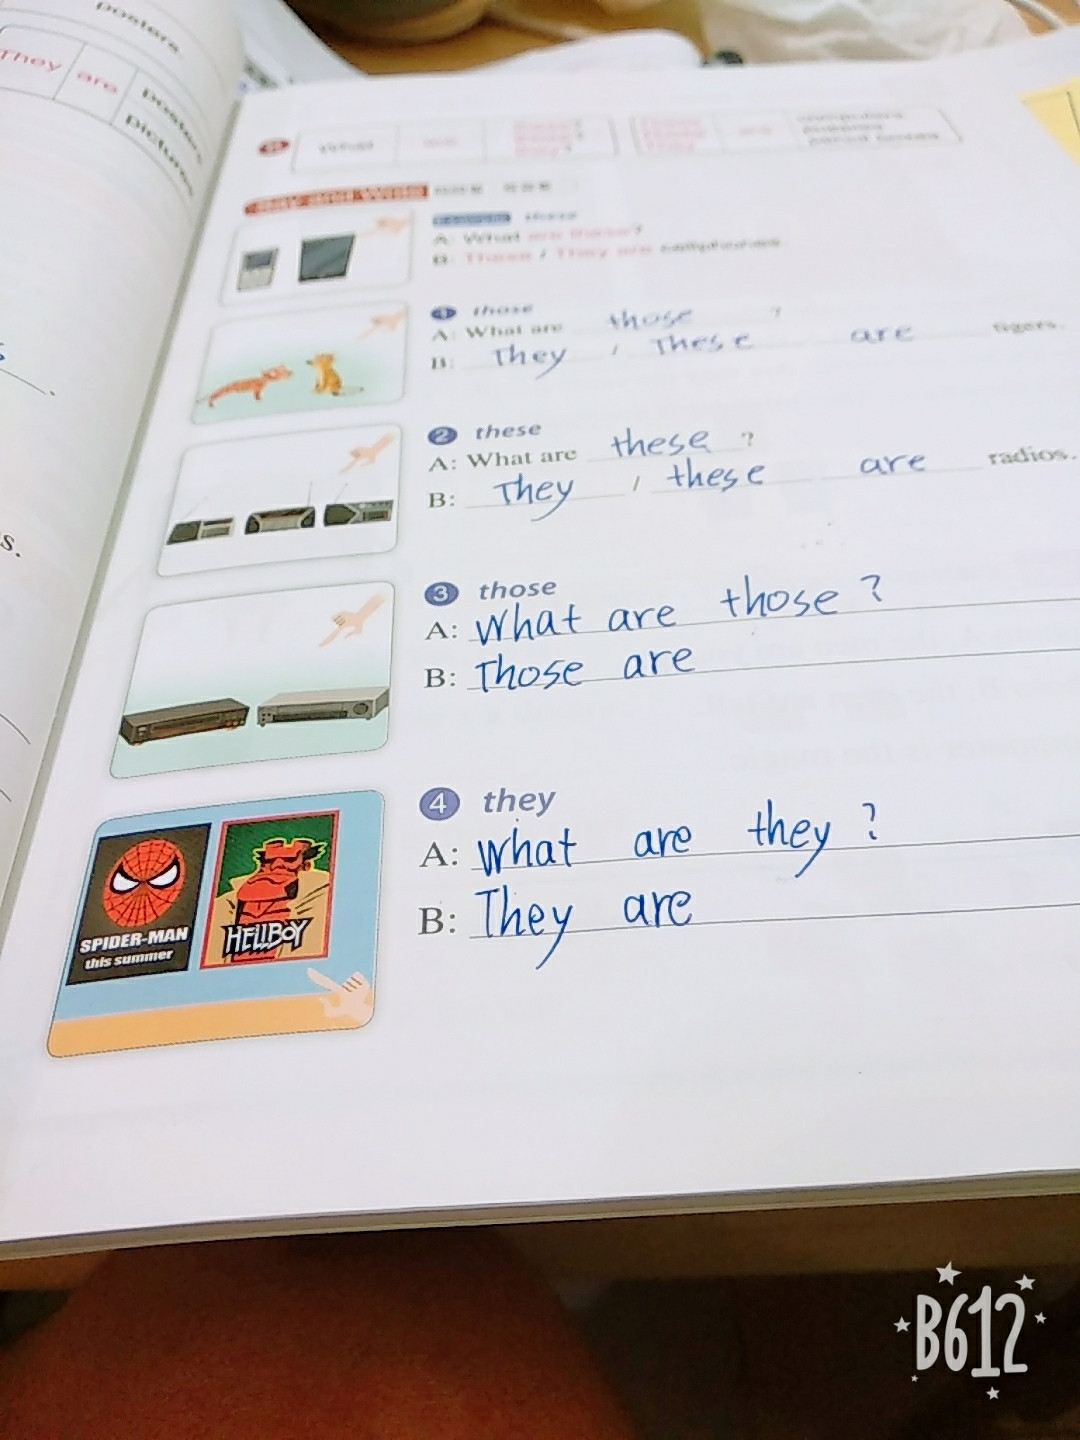 posters
They are posters
pictures
B What are
are computers
Say and Write
Example these
A: What are these?
B: These / They are cellphones
1 those
A: What are those ?
B: They / These are tigers.
2 these
A: What are these ?
B: They / these are radios.
s.
3 those
A: What are those ?
B: Those are
4 they
A: What are they ?
B: They are
SPIDER-MAN
this summer
HELLBOY
B612